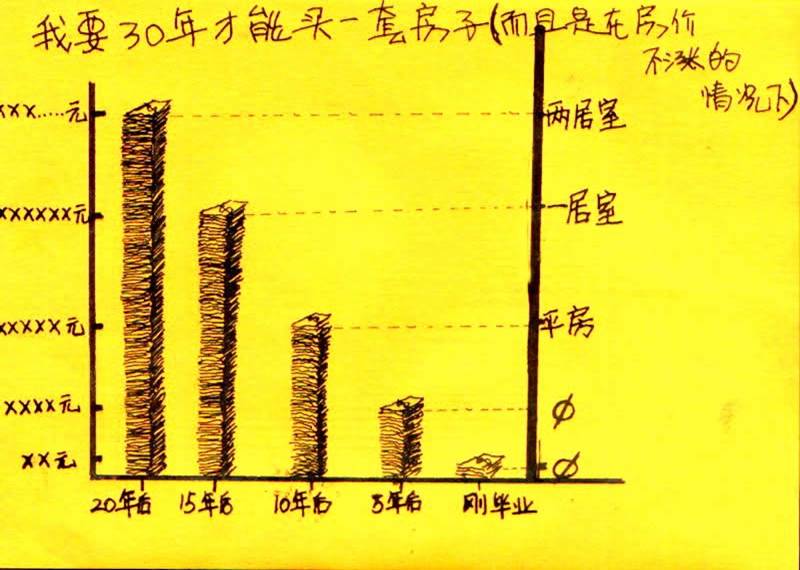 我要30年才能买一套房子(而且是在房价
不涨的
情况下)
xxx.....元
两居室
xxxxxx元
一居室
xxxxx元
平房
xxxx元
ø
xx元
ø
20年后 15年后 10年后 5年后 刚毕业